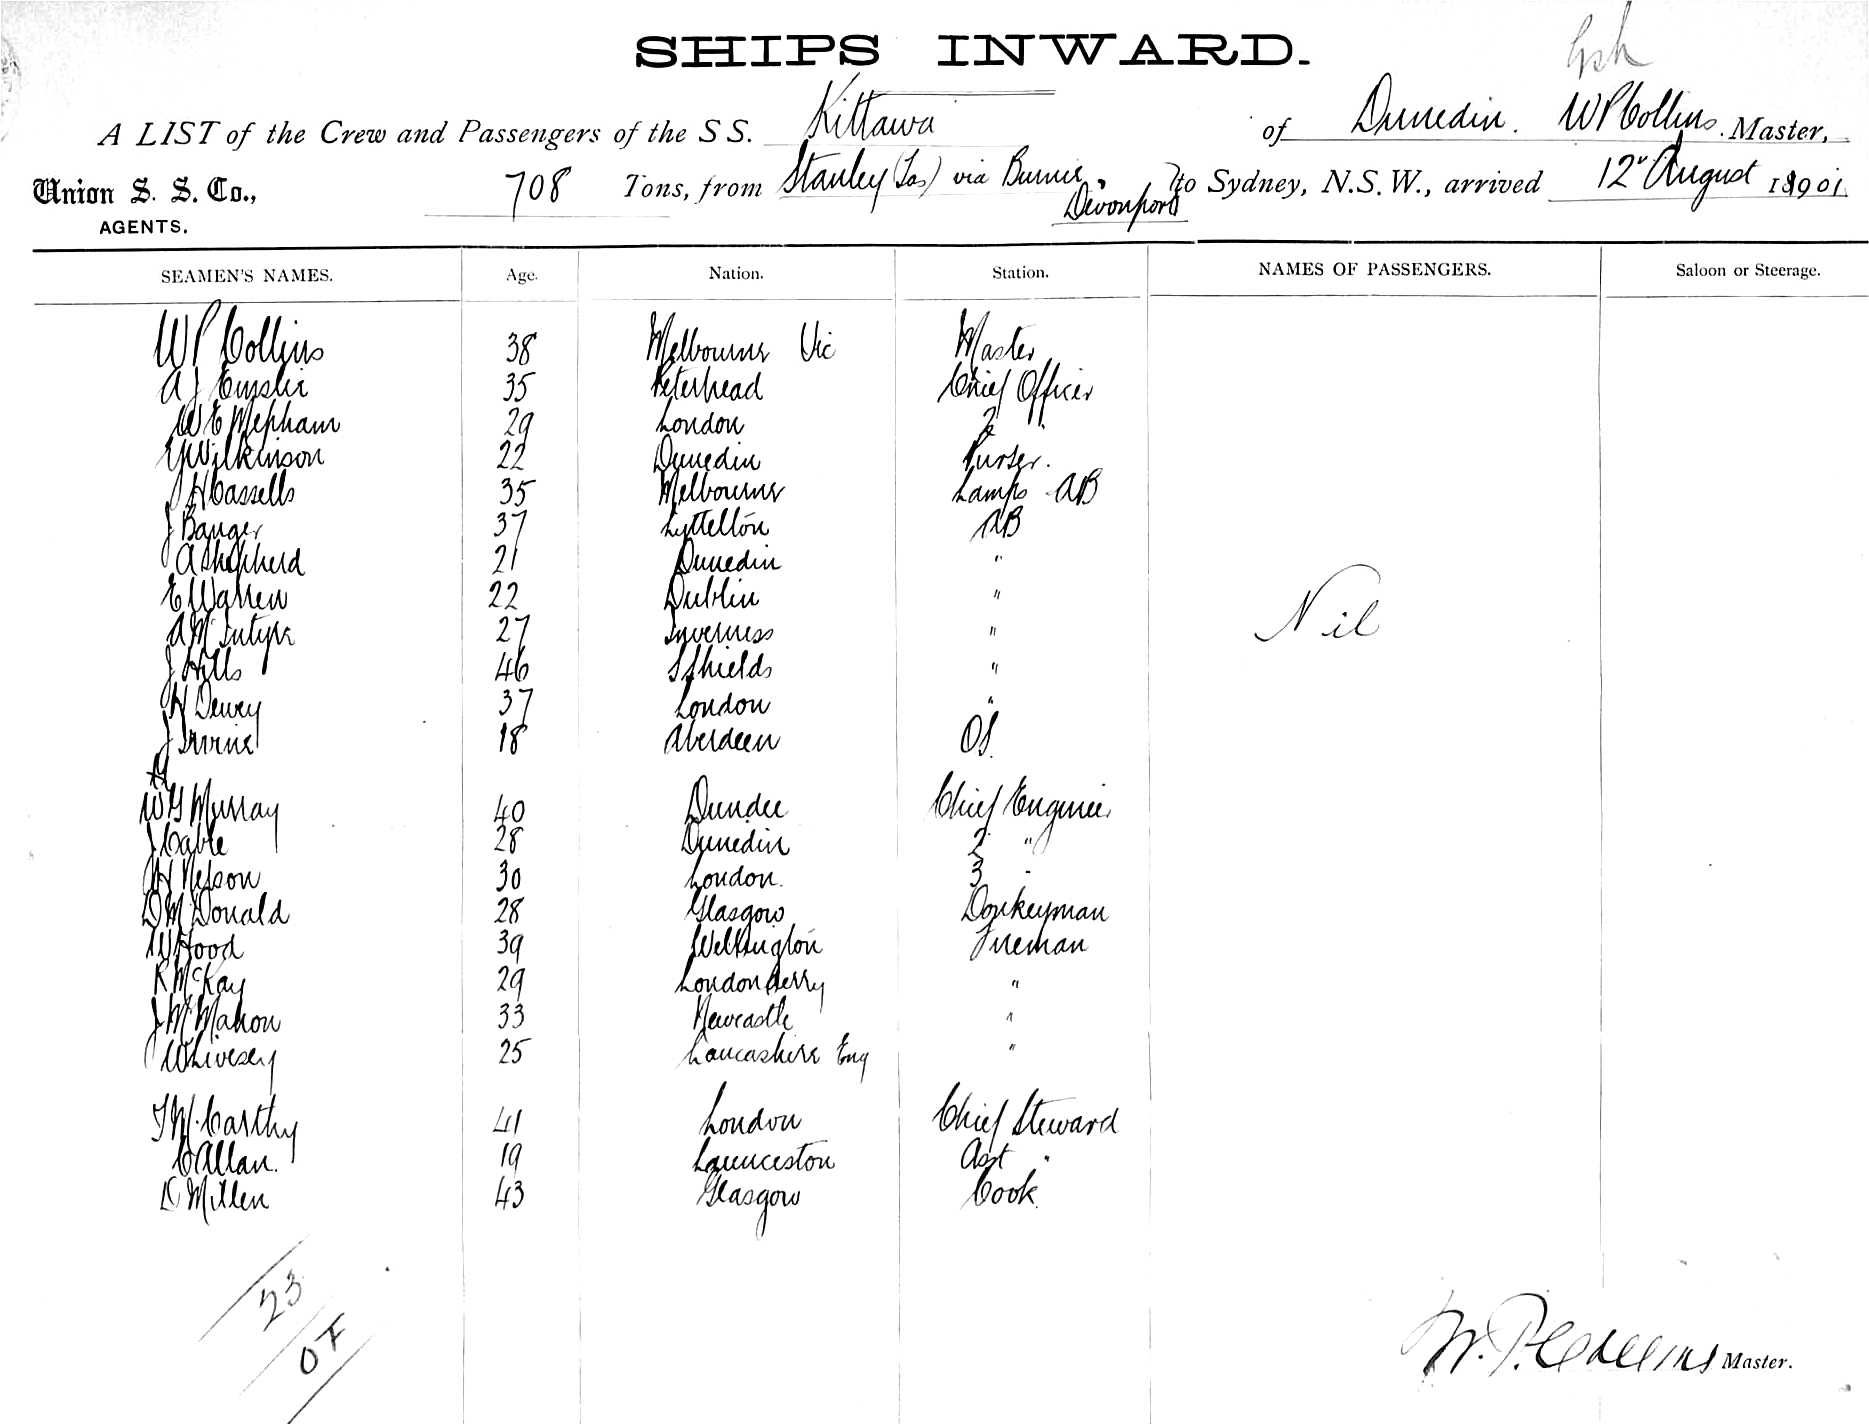 SHIPS INWARD.
A LIST of the Crew and Passengers of the SS. Kittawa of Dunedin. WP Collins. Master,
Union S. S. Co., 708 Tons, from Stanley (Tas) via Burnie, Devonport to Sydney, N.S.W., arrived 12" August 1901.
AGENTS.
SEAMEN'S NAMES. Age. Nation. Station. NAMES OF PASSENGERS. Saloon or Steerage.
WP Collins 38 Melbourne Vic Master
A J Emslie 35 Peterhead Chief Officer
W E Mepham 29 London 2 "
Wilkinson 22 Dunedin Purser.
J H Cassells 35 Melbourne Lamps AB
J Banger 37 Lyttelton AB
A Shepherd 21 Dunedin "
E Warren 22 Dublin "
A McIntyre 27 Inverness "
Nil
J Hills 46 S Shields "
H Dewey 37 London "
J Irvine 18 Aberdeen OS.
W G Murray 40 Dundee Chief Engineer
J Cable 28 Dunedin 2 "
H Nelson 30 London. 3 "
D McDonald 28 Glasgow Donkeyman
W Hood 39 Wellington Fireman
R McKay 29 Londonderry "
J McMahon 33 Newcastle "
W Livesey 25 Lancashire Eng "
T McCarthy 41 London Chief Steward
C Allan. 19 Launceston Asst "
D Millen 43 Glasgow Cook.
23
W. P. Collins Master.